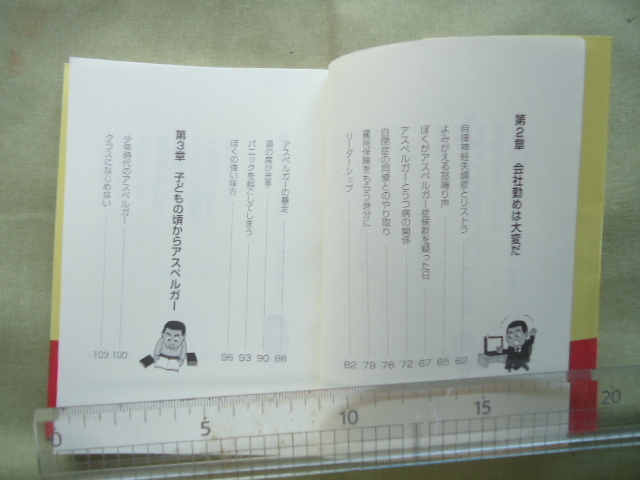 第2章 会社勤めは大変だ
自律神経失調症とリストラ 62
よみがえる怒鳴り声 65
ぼくがアスペルガー症候群を疑った日 67
アスペルガーとうつ病の関係 72
自閉症の同僚とのやり取り 78
雇用保険をもらう身分に 79
リーダーシップ 82
アスペルガーの暴走 86
道の窯が苦手 90
パニックを起こしてしまう 93
ぼくの強い味方 96
第3章 子どもの頃からアスペルガー
少年時代のアスペルガー 100
クラスになじめない 103
0 5 10 15 20